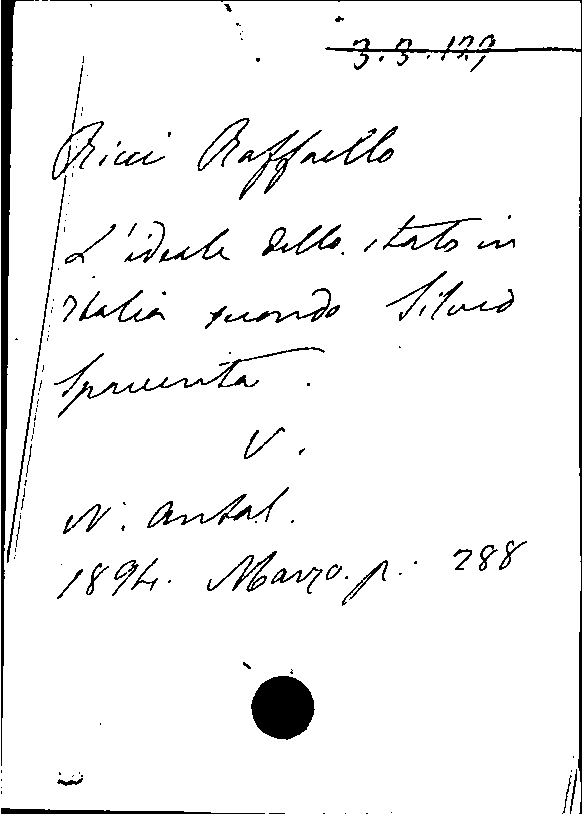 3.3.127
Ricci Raffaello
L'ideale dello stato in
Italia secondo Silvio
Spaventa.
V.
N. Antol.
1894. Marzo. p. 288